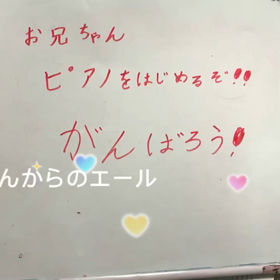 お兄ちゃん
ピアノをはじめるぞ!!
がんばろう!
んからのエール